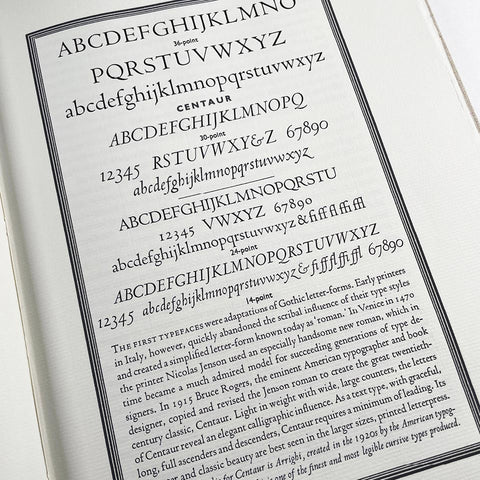 ABCDEFGHIJKLMNO
36-point
PQRSTUVWXYZ
abcdefghijklmnopqrstuvwxyz
CENTAUR
ABCDEFGHIJKLMNOPQ
30-point
12345 RSTUVWXY&Z 67890
abcdefghijklmnopqrstuvwxyz
ABCDEFGHIJKLMNOPQRSTU
12345 VWXYZ 67890
abcdefghijklmnopqrstuvwxyz&fiffflffiffl
24-point
ABCDEFGHIJKLMNOPQRSTUVWXYZ
12345 abcdefghijklmnopqrstuvwxyz&fiffflffiffl 67890
14-point
THE FIRST TYPEFACES were adaptations of Gothic letter-forms. Early printers
in Italy, however, quickly abandoned the scribal influence of their type styles
and created a simplified letter-form known today as 'roman.' In Venice in 1470
the printer Nicolas Jenson used an especially handsome new roman, which in
time became a much admired model for succeeding generations of type de-
signers. In 1915 Bruce Rogers, the eminent American typographer and book
designer, copied and revised the Jenson roman to create the great twentieth-
century classic, Centaur. Light in weight with wide, large counters, the letters
of Centaur reveal an elegant calligraphic influence. As a text type, with graceful,
long, full ascenders and descenders, Centaur requires a minimum of leading. Its
and classic beauty are best seen in the larger sizes, printed letterpress.
for Centaur is Arrighi, created in the 1920s by the American typog-
is one of the finest and most legible cursive types produced.